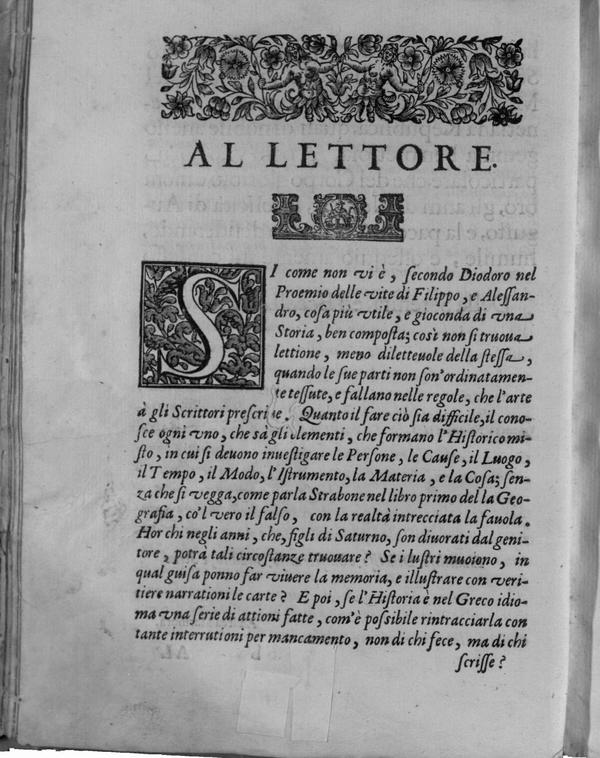 AL LETTORE.
SI come non vi è, ſecondo Diodoro nel
Proemio delle vite di Filippo, e Aleſſan-
dro, coſa più vtile, e gioconda di vna
Storia, ben compoſta; così non ſi truoua
lettione, meno diletteuole della ſteſſa,
quando le ſue parti non ſon'ordinatamen-
te teſſute, e fallano nelle regole, che l'arte
à gli Scrittori preſcriue. Quanto il fare ciò ſia difficile, il cono-
ſce ogni vno, che sà gli elementi, che formano l'Hiſtorico mi-
ſto, in cui ſi deuono inueſtigare le Perſone, le Cauſe, il Luogo,
il Tempo, il Modo, l'Iſtrumento, la Materia, e la Coſa; ſen-
za che ſi vegga, come parla Strabone nel libro primo della Geo-
grafia, co'l vero il falſo, con la realtà intrecciata la fauola.
Hor chi negli anni, che, figli di Saturno, ſon diuorati dal geni-
tore, potrà tali circoſtanze truouare? Se i luſtri muoiono, in
qual guiſa ponno far viuere la memoria, e illuſtrare con veri-
tiere narrationi le carte? E poi, ſe l'Hiſtoria è nel Greco idio-
ma vna ſerie di attioni fatte, com'è poſſibile rintracciarla con
tante interrutioni per mancamento, non di chi fece, ma di chi
ſcriſſe?